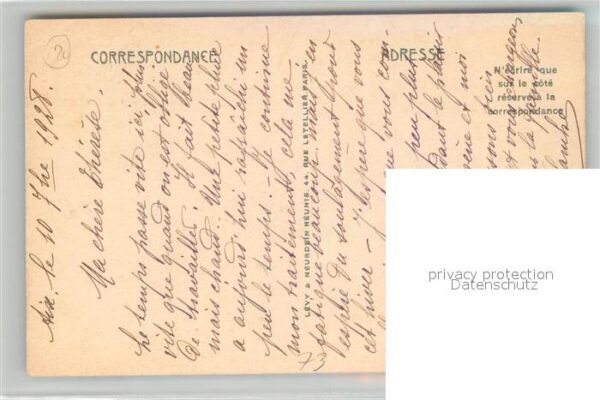 CORRESPONDANCE
ADRESSE
N'écrire que
sur le côté
réservé à la
correspondance
LÉVY & NEURDEIN RÉUNIS, 44, RUE LETELLIER, PARIS
Aix, le 10 7bre 1928.
Ma chère Thérèse.
Le temps passe vite ici, plus
vite que quand on est obligé
de travailler. Il fait beau
mais chaud. Une petite pluie
a aujourd'hui rafraîchi un
peu le temps. Je continue
mon traitement, cela me
fatigue beaucoup mais j'en
espère du soulagement pour
cet hiver. J'espère que vous
que vous con
peu plus
dant le plaisir
et moi
sons rien
et vous
la famille
73
privacy protection
Datenschutz